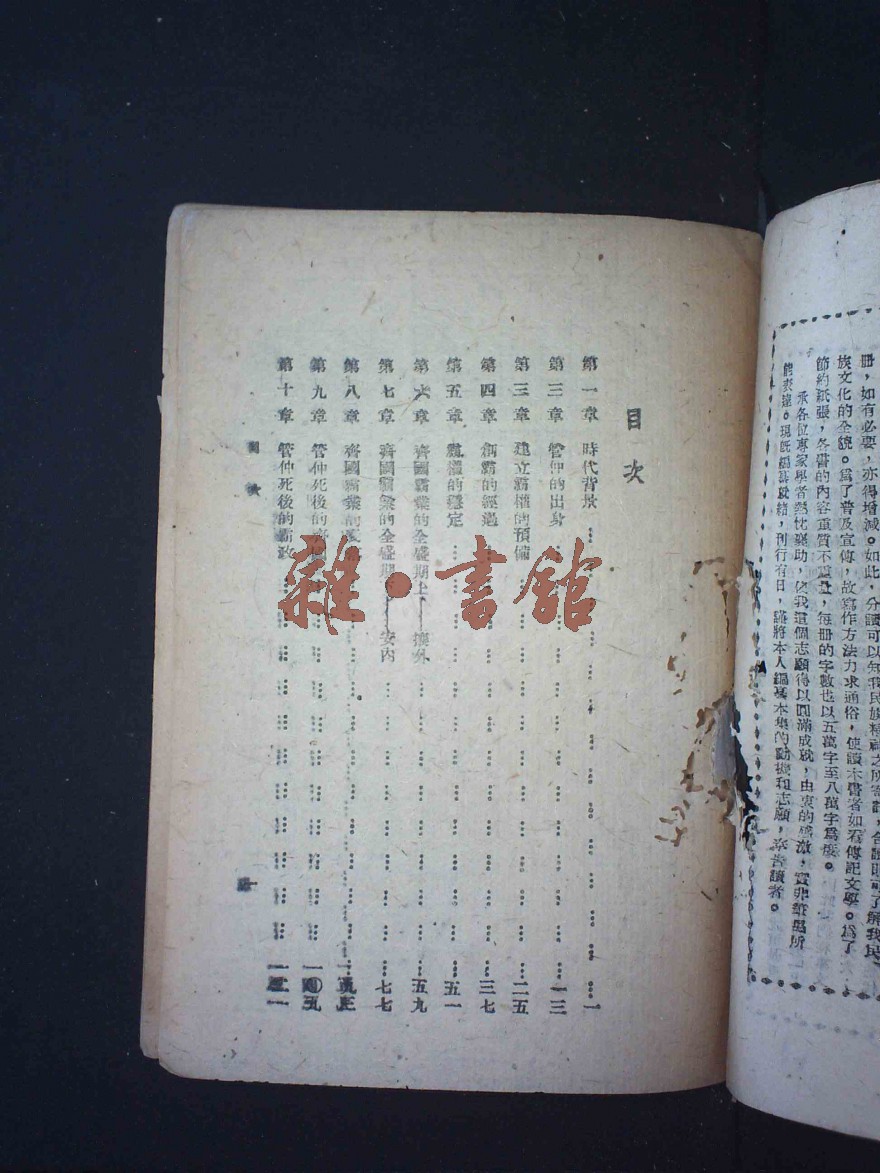 冊，如有必要，亦得增減。如此，分讀可以知我民族精神之所寄託，合讀則可了解我民
族文化的全貌。爲了普及宣傳，故寫作方法力求通俗，使讀本書者如看傳記文學。爲了
節約紙張，各書的內容重質不重量，每冊的字數也以五萬字至八萬字爲度。
承各位專家學者熱忱襄助，使我這個志願得以圓滿成就，由衷的感激，實非筆墨所
能表達。現旣編纂竣結，刊行有日，謹將本人編纂本集的動機和志願，奉告讀者。
目次
第一章 時代背景……一
第二章 管仲的出身……一三
第三章 建立霸權的預備……二五
第四章 創霸的經過……三七
第五章 霸權的穩定……五一
第六章 齊國霸業的全盛期上——攘外……五九
第七章 齊國霸業的全盛期下——安內……七七
第八章 齊國霸業的……
第九章 管仲死後的齊國……
第十章 管仲死後的霸政……
目次
一
雜·書館